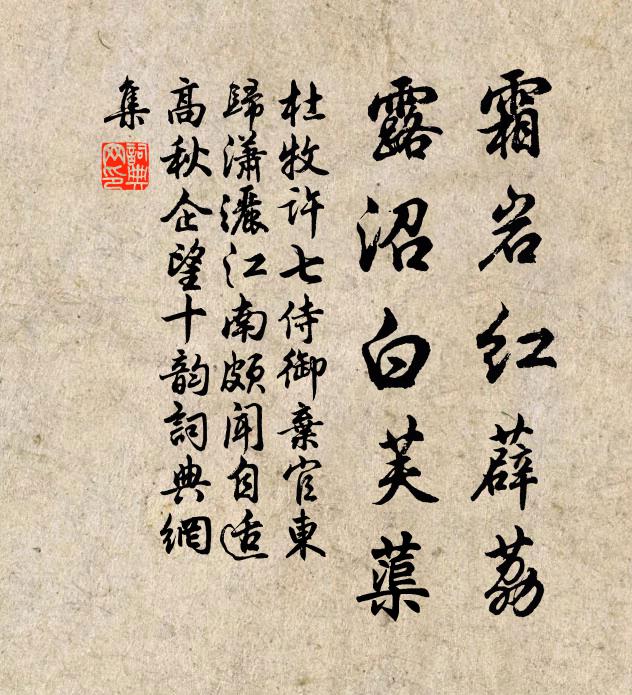 霜岩红薜荔
露沼白芙蕖
杜牧许七侍御棄官東
歸瀟灑江南頗聞自适
高秋企望十韵詞典網
集
詞典網印